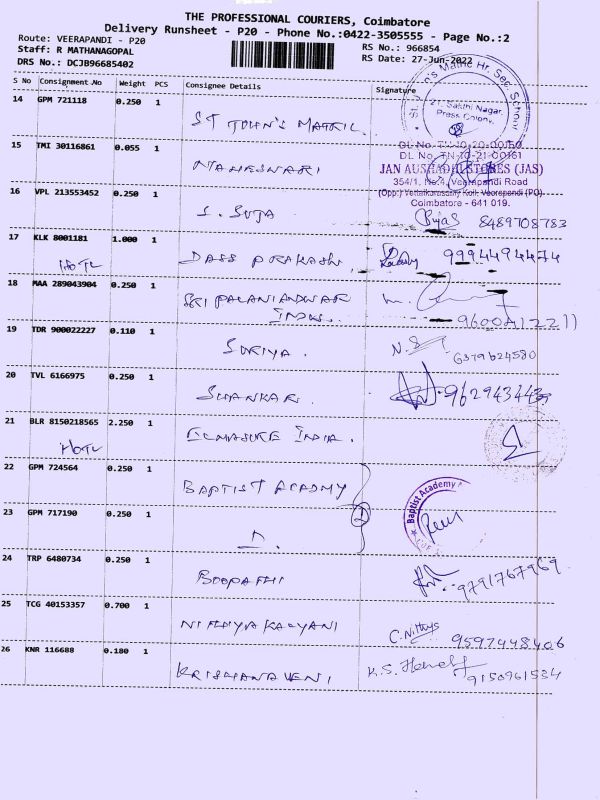 THE PROFESSIONAL COURIERS, Coimbatore
Delivery Runsheet - P20 - Phone No.:0422-3505555 - Page No.:2
Route: VEERAPANDI - P20
RS No.: 966854
Staff: R MATHANAGOPAL
RS Date: 27-Jun-2022
DRS No.: DCJB96685402
S No Consignment.No Weight PCS Consignee Details Signature
14 GPM 721118 0.250 1
ST JOHN'S MATRIC
Matric Hr. Sec. School
21, Sakthi Nagar,
Press Colony,
15 TMI 30116861 0.055 1
MAHESWARI
DL No. TN-10-20-00160
DL No. TN-10-21-00161
JAN AUSHADHI STORES (JAS)
354/1, No.4, Veerapandi Road
(Opp.) Vettaikarasamy Koil, Veerapandi (PO)
Coimbatore - 641 019.
16 VPL 213553452 0.250 1
S. SUJA
8489708783
17 KLK 8001181 1.000 1
HOTL
DASS PRAKASH
9994494474
18 MAA 289043904 0.250 1
SRI PALANIANDAVAR
INDUS.
9600412211
19 TDR 900022227 0.110 1
SURIYA.
N.S
6379624580
20 TVL 6166975 0.250 1
SHANKAR
21 BLR 8150218565 2.250 1
HOTL
ELMASURE INDIA.
22 GPM 724564 0.250 1
BAPTIST ACADMY
2
Baptist Academy
23 GPM 717190 0.250 1
24 TRP 6480734 0.250 1
BOOPATHI
9791767969
25 TCG 40153357 0.700 1
NITHIYA KALYANI
C.Nithya
9597448406
26 KNR 116688 0.180 1
KRISHANAVENI
K.S.
9150961534